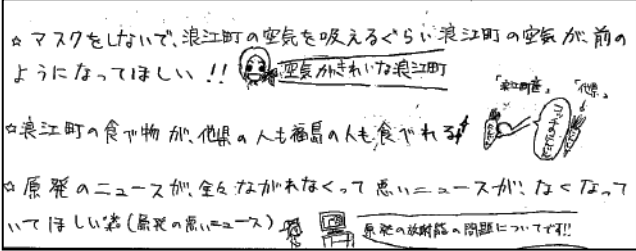 ☆マスクをしないで、浪江町の空気を吸えるぐらい浪江町の空気が、前の
ようになってほしい!!
空気がきれいな浪江町
☆浪江町の食べ物が、他県の人も福島の人も食べれる
「浪江町産」
「他県」
☆原発のニュースが、全々ながれなくって悪いニュースが、なくなって
いてほしい(原発の悪いニュース)
原発の放射能の問題についてです!!